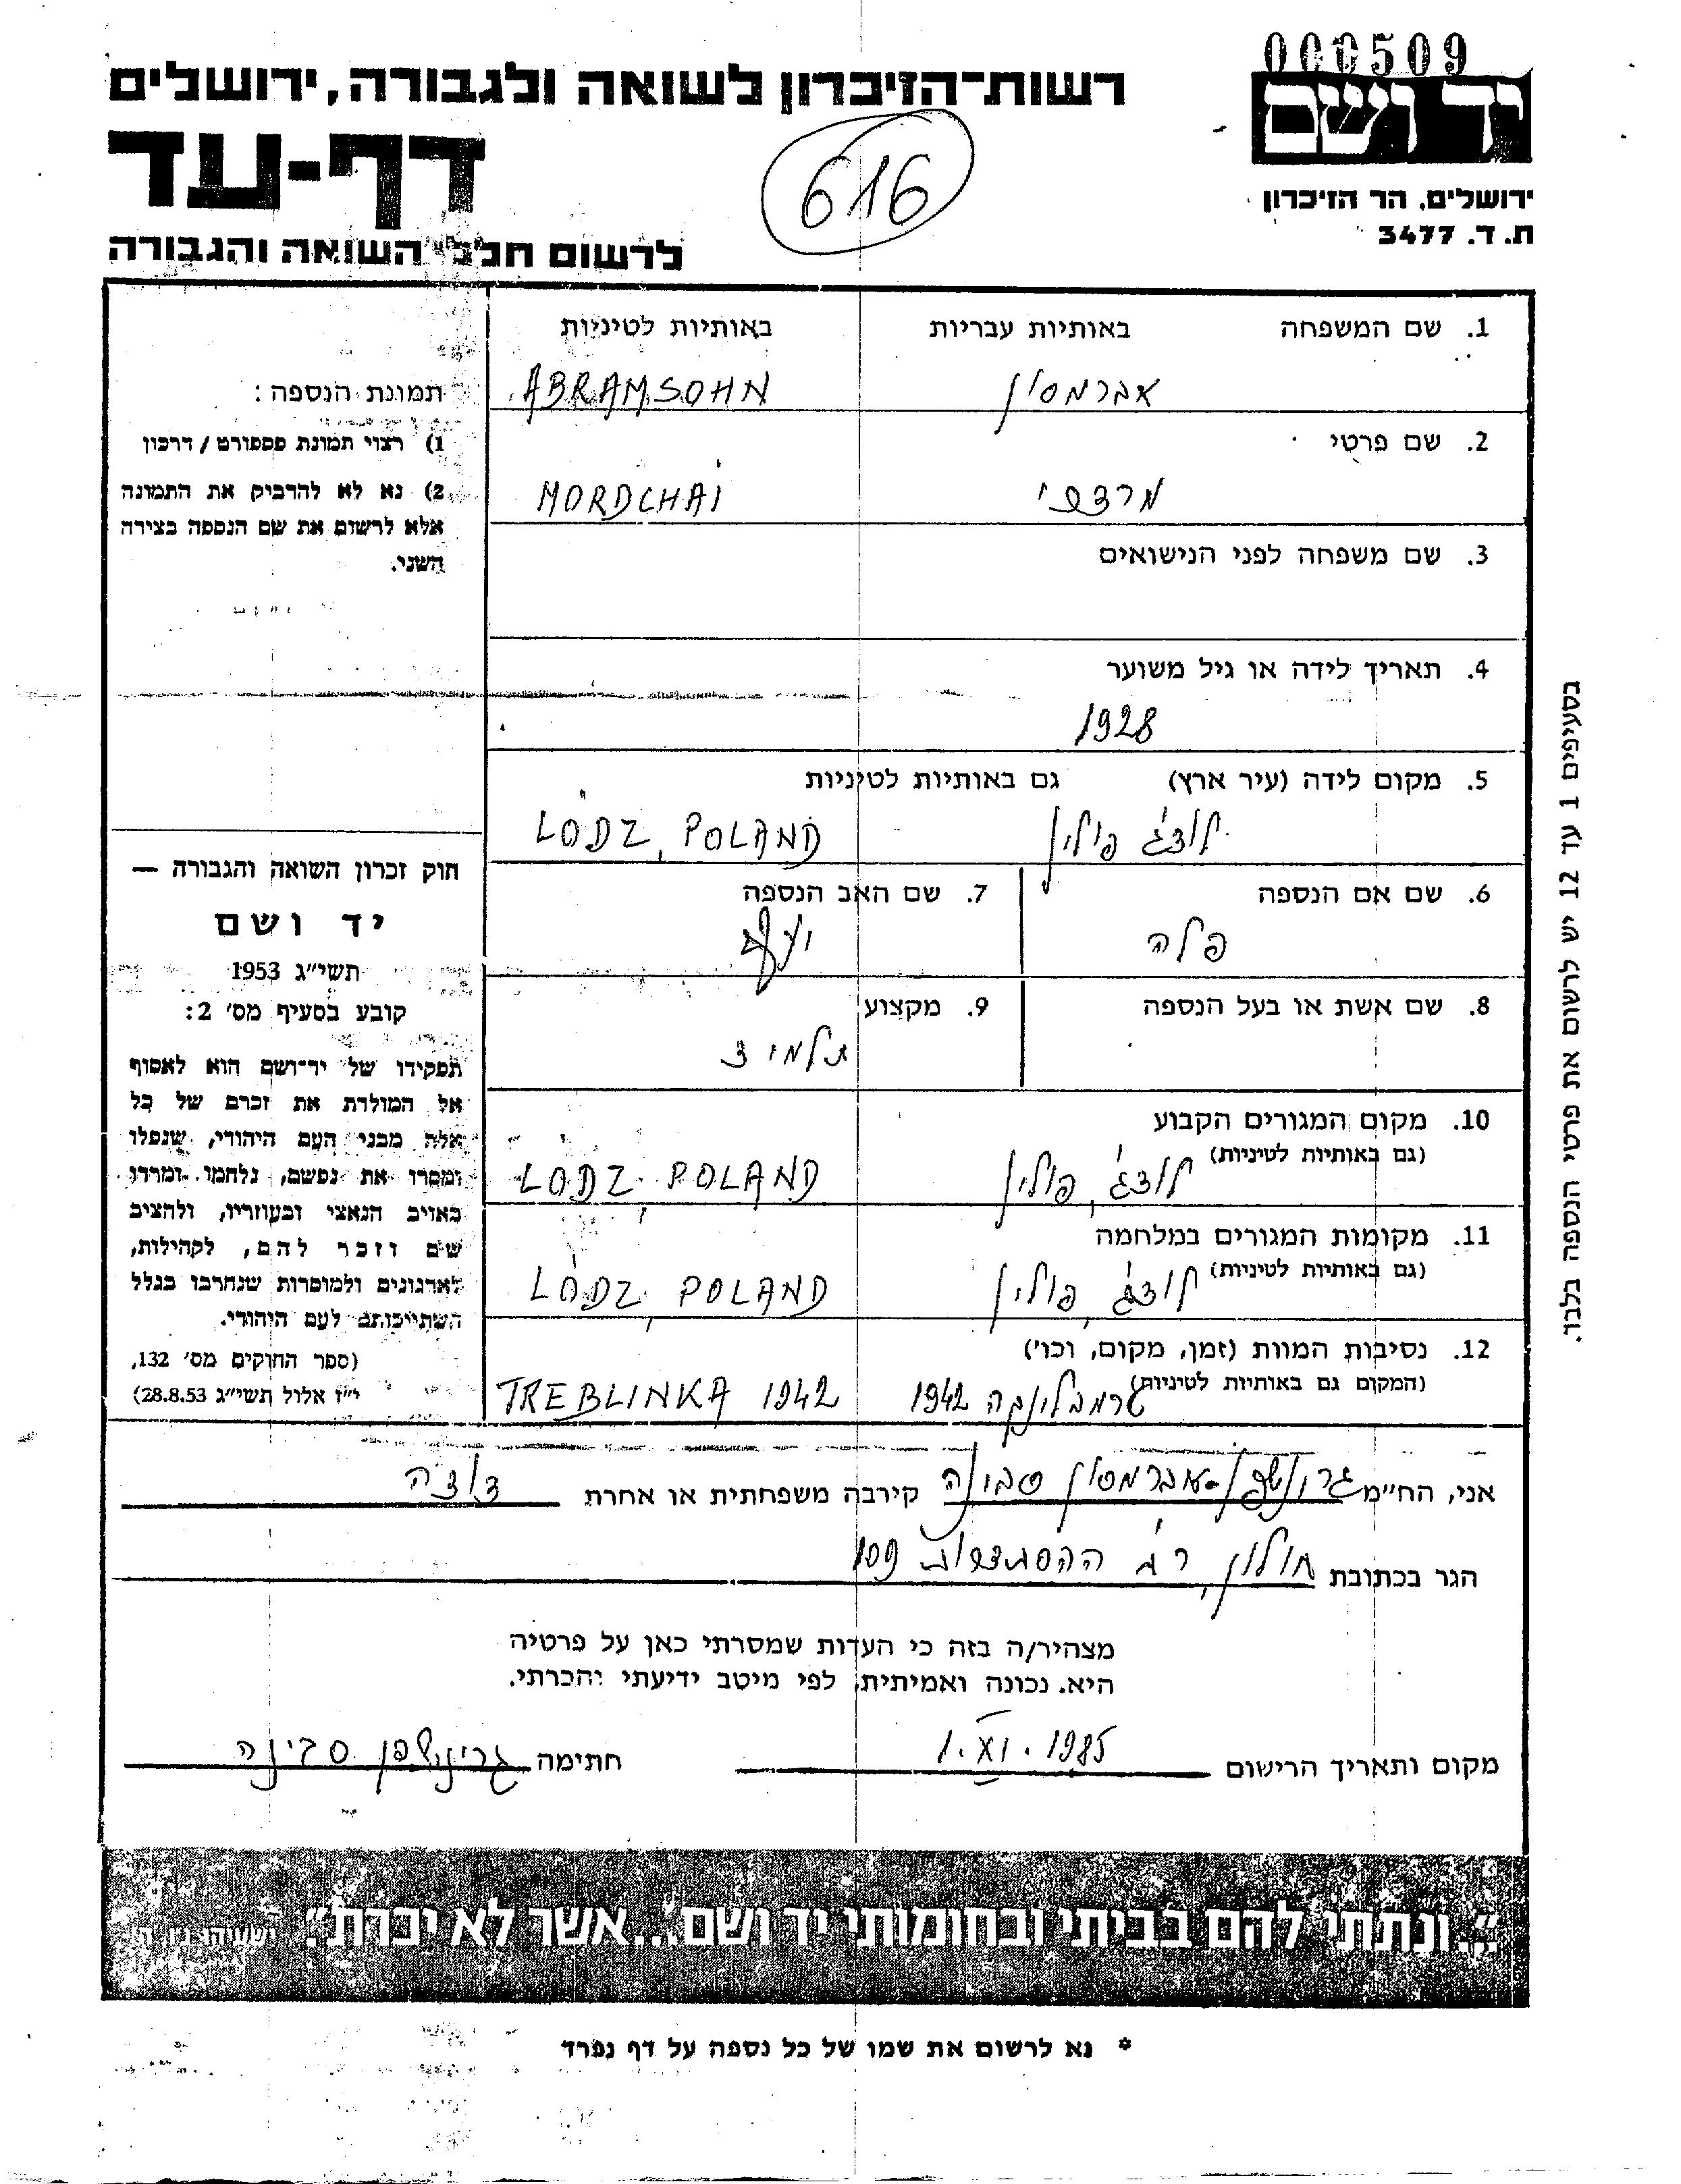 000509
יד ושם
ירושלים, הר הזיכרון
ת. ד. 3477
רשות־הזיכרון לשואה ולגבורה, ירושלים
דף-עד
לרשום חללי השואה והגבורה
616
1. שם המשפחה באותיות עבריות באותיות לטיניות
אברמסון ABRAMSOHN
2. שם פרטי
מרדכי MORDCHAI
3. שם משפחה לפני הנישואים
4. תאריך לידה או גיל משוער
1928
5. מקום לידה (עיר ארץ) גם באותיות לטיניות
לודג' פולין LODZ, POLAND
6. שם אם הנספה 7. שם האב הנספה
פלה
8. שם אשת או בעל הנספה 9. מקצוע
תלמיד
10. מקום המגורים הקבוע
(גם באותיות לטיניות)
לודג', פולין LODZ, POLAND
11. מקומות המגורים במלחמה
(גם באותיות לטיניות)
לודג', פולין LODZ, POLAND
12. נסיבות המוות (זמן, מקום, וכו')
(המקום גם באותיות לטיניות)
טרמבלינקה 1942 TREBLINKA 1942
תמונת הנספה:
1) רצוי תמונת פספורט / דרכון
2) נא לא להדביק את התמונה
אלא לרשום את שם הנספה בצידה
השני.
חוק זכרון השואה והגבורה —
יד ושם
תשי״ג 1953
קובע בסעיף מס' 2:
תפקידו של יד־ושם הוא לאסוף
אל המולדת את זכרם של כל
אלה מבני העם היהודי, שנפלו
ומסרו את נפשם, נלחמו ומרדו
באויב הנאצי ובעוזריו, ולהציב
שם וזכר להם, לקהילות,
לארגונים ולמוסדות שנחרבו בגלל
השתייכותם לעם היהודי.
(ספר החוקים מס' 132,
י״ז אלול תשי״ג 28.8.53)
בסעיפים 1 עד 12 יש לרשום את פרטי הנספה בלבד.
אני, החי״מ גרינשפן-אברמסון סבינה קירבה משפחתית או אחרת דודה
הגר בכתובת חולון, רח' ההסתדרות 109
מצהיר/ה בזה כי העדות שמסרתי כאן על פרטיה
היא נכונה ואמיתית, לפי מיטב ידיעתי והכרתי.
מקום ותאריך הרישום 1.XI.1985 חתימה גרינשפן סבינה
״...ונתתי להם בביתי ובחומותי יד ושם...אשר לא יכרת״. ישעיהו נ״ו, ה'
* נא לרשום את שמו של כל נספה על דף נפרד